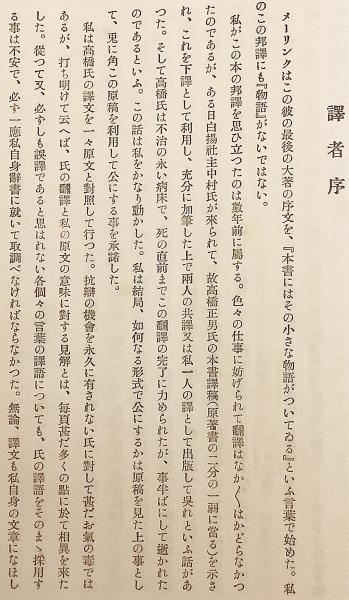 譯者序
メーリンクはこの彼の最後の大著の序文を、『本書にはその小さな物語がついてゐる』といふ言葉で始めた。私
のこの邦譯にも『物語』がないではない。
私がこの本の邦譯を思ひ立つたのは數年前に屬する。色々の仕事に妨げられて翻譯はなか〳〵はかどらなかつ
たのであるが、ある日白揚社主中村氏が來られて、故高橋正男氏の本書譯稿(原著書の二分の一弱に當る)を示さ
れ、これを下譯として利用し、充分に加筆した上で兩人の共譯又は私一人の譯として出版して吳れといふ話があ
つた。そして高橋氏は不治の永い病床で、死の直前までこの翻譯の完了に力められたが、事半ばにして逝かれた
のであるといふ。この話は私をかなり動かした。私は結局、如何なる形式で公にするかは原稿を見た上の事とし
て、兎に角この原稿を利用して公にする事を承諾した。
私は高橋氏の譯文を一々原文と對照して行つた。抗辯の機會を永久に有されない氏に對して甚だお氣の毒では
あるが、打ち明けて云へば、氏の翻譯と私の原文の意味に對する見解とは、每頁甚だ多くの點に於て相異を來た
した。從つて又、必ずしも誤譯であると思はれない各個々の言葉の譯語についても、氏の譯語をそのまゝ採用す
る事は不安で、必ず一應私自身辭書に就いて取調べなければならなかつた。無論、譯文も私自身の文章になほし